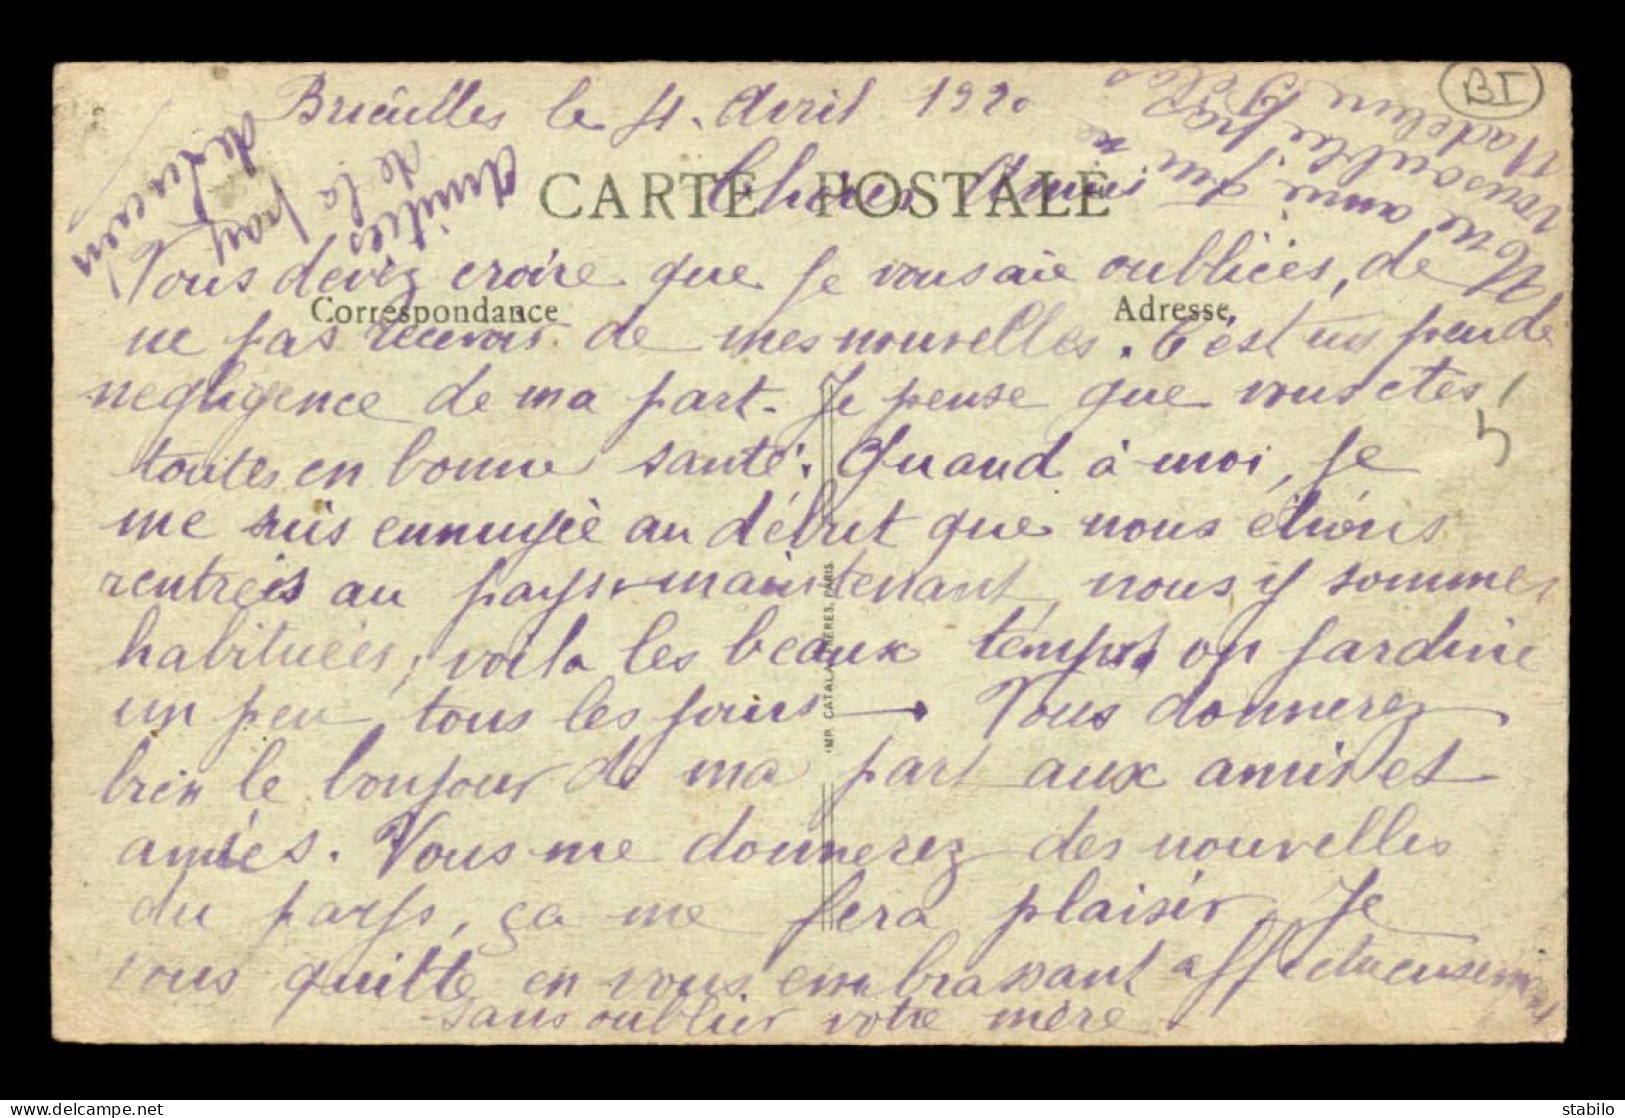 Brieulles le 4. Avril 1920
BI
CARTE POSTALE
Chères Amies
Vous devez croire que je vous aie oubliées, de
Correspondance
Adresse
ne pas recevoir de mes nouvelles. C'est un peu de
negligence de ma part. Je pense que vous etes
toutes en bonne santé. Quand à moi, je
me suis ennuyée au début que nous étions
rentrées au pays maintenant, nous y sommes
habituées, voila les beaux temps, on jardine
un peu tous les jours Vous donnerez
bien le bonjour de ma part aux amis et
amies. Vous me donnerez des nouvelles
du pays, ça me fera plaisir, Je
vous quitte en vous embrassant affectueusement
sans oublier votre mère.
Amitiés
de la
part
de
Votre amie qui ne
vous oublie pas
Madeleine
IMP. CATALA FRERES, PARIS